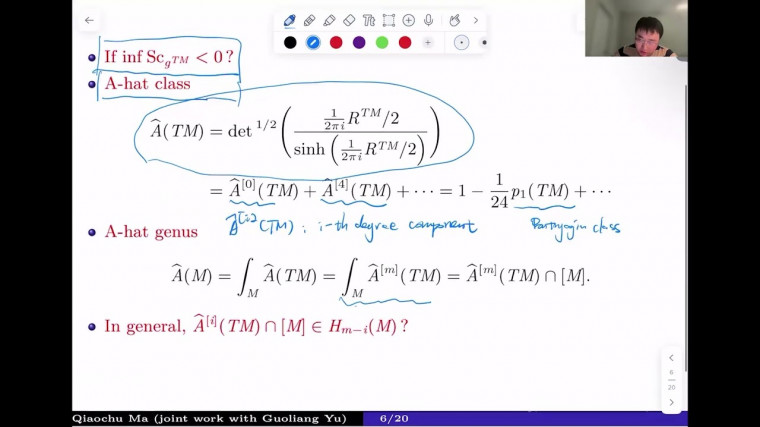 If inf Sc_{g^{TM}} < 0 ?
A-hat class
Â(TM) = det^{1/2} ( \frac{\frac{1}{2πi} R^{TM}/2}{sinh ( \frac{1}{2πi} R^{TM}/2 )} )
= Â^{[0]}(TM) + Â^{[4]}(TM) + ··· = 1 − \frac{1}{24} p_1(TM) + ···
Â^{[i]}(TM) : i-th degree component
Pontryagin class
A-hat genus
Â(M) = ∫_M Â(TM) = ∫_M Â^{[m]}(TM) = Â^{[m]}(TM) ∩ [M].
In general, Â^{[i]}(TM) ∩ [M] ∈ H_{m−i}(M) ?
6
20
Qiaochu Ma (joint work with Guoliang Yu) 6/20